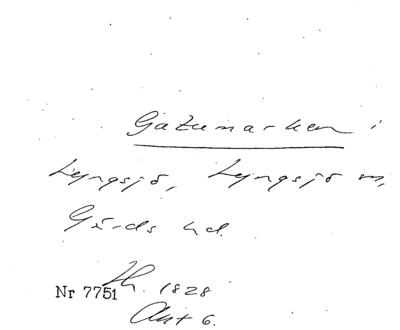 Gatumarken i
Lyngsjö, Lyngsjö sn,
Gärds hd.
Lh. 1828
Nr 7751
Akt 6.